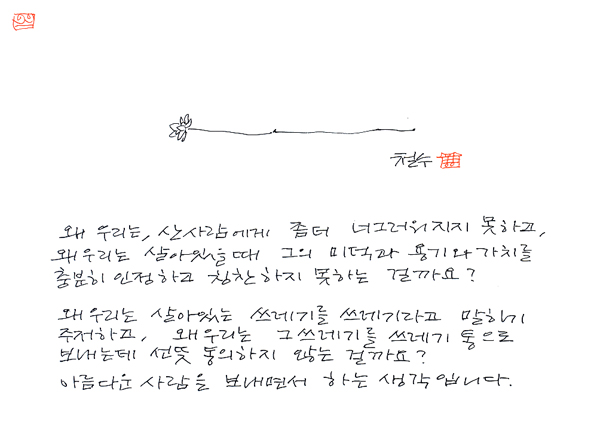 철수
왜 우리는, 산사람에게 좀더 너그러워지지 못하고,
왜 우리는 살아있을때 그의 미덕과 용기와 가치를
충분히 인정하고 칭찬하지 못하는 걸까요?
왜 우리는 살아있는 쓰레기를 쓰레기라고 말하기
주저하고, 왜 우리는 그쓰레기를 쓰레기 통으로
보내는데 선뜻 동의하지 않는 걸까요?
아름다운 사람을 보내면서 하는 생각입니다.